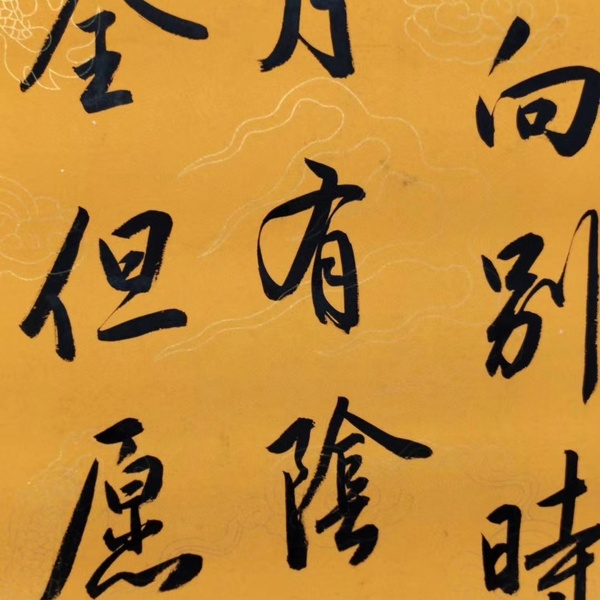 向別時
月有陰
全但愿